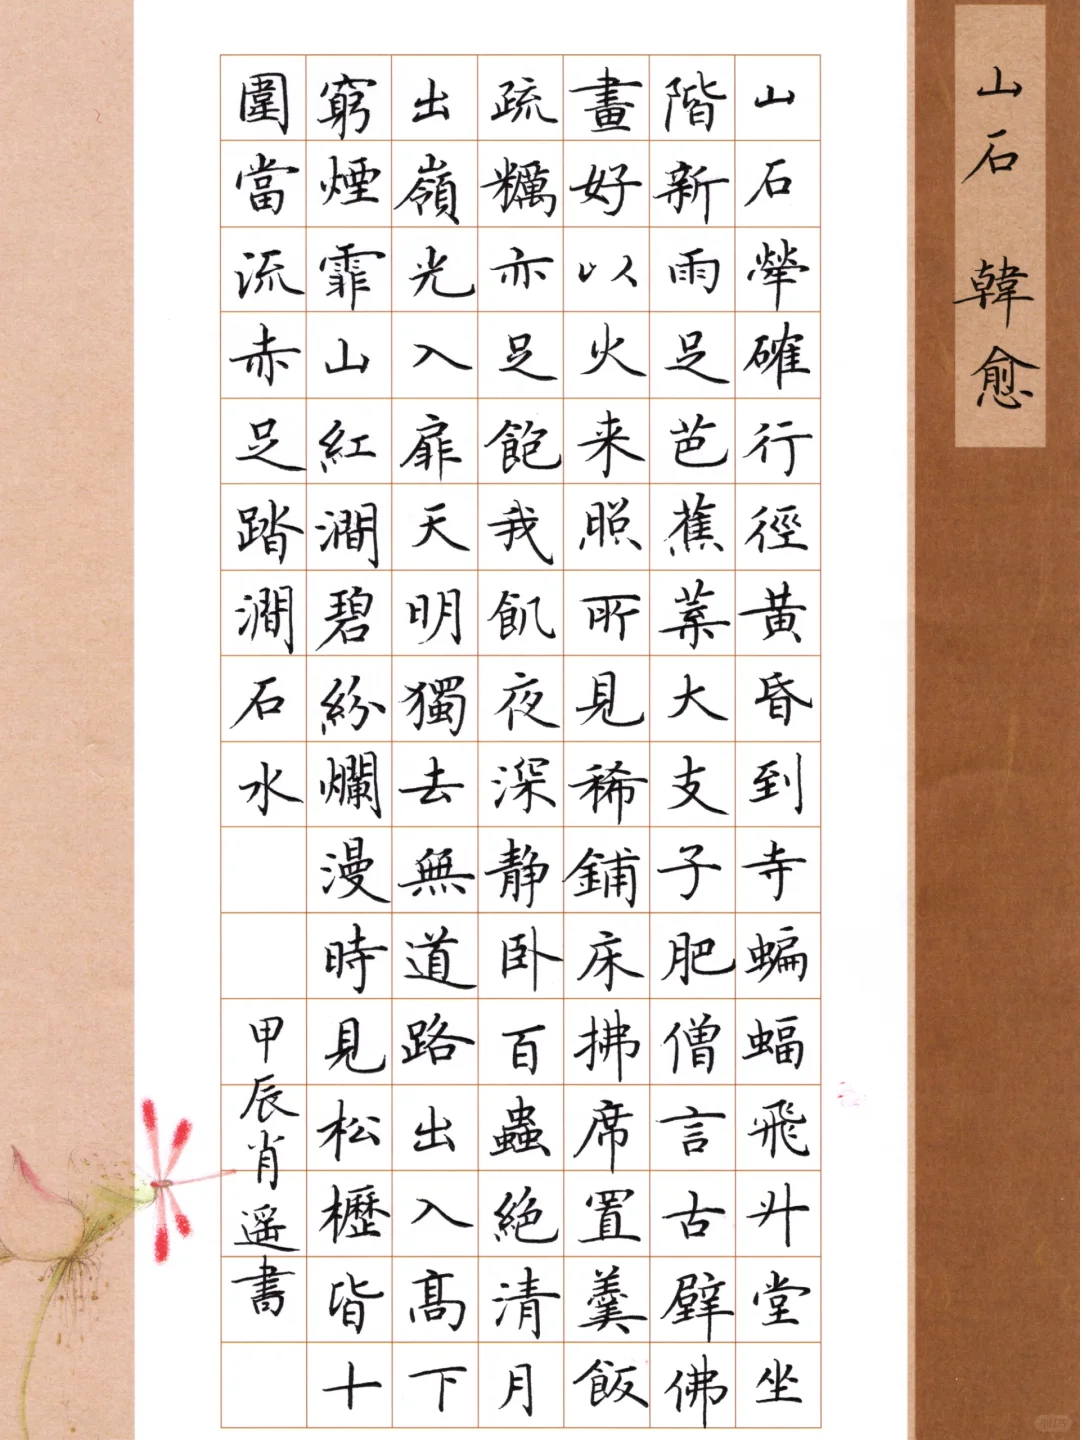 山石 韓愈
山石犖確行徑黃昏到寺蝙蝠飛升堂坐
階新雨足芭蕉葉大支子肥僧言古壁佛
畫好以火来照所見稀鋪床拂席置羹飯
疏糲亦足飽我飢夜深静卧百蟲絕清月
出嶺光入扉天明獨去無道路出入高下
窮煙霏山紅澗碧紛爛漫時見松櫪皆十
圍當流赤足踏澗石水
甲辰肖遥書